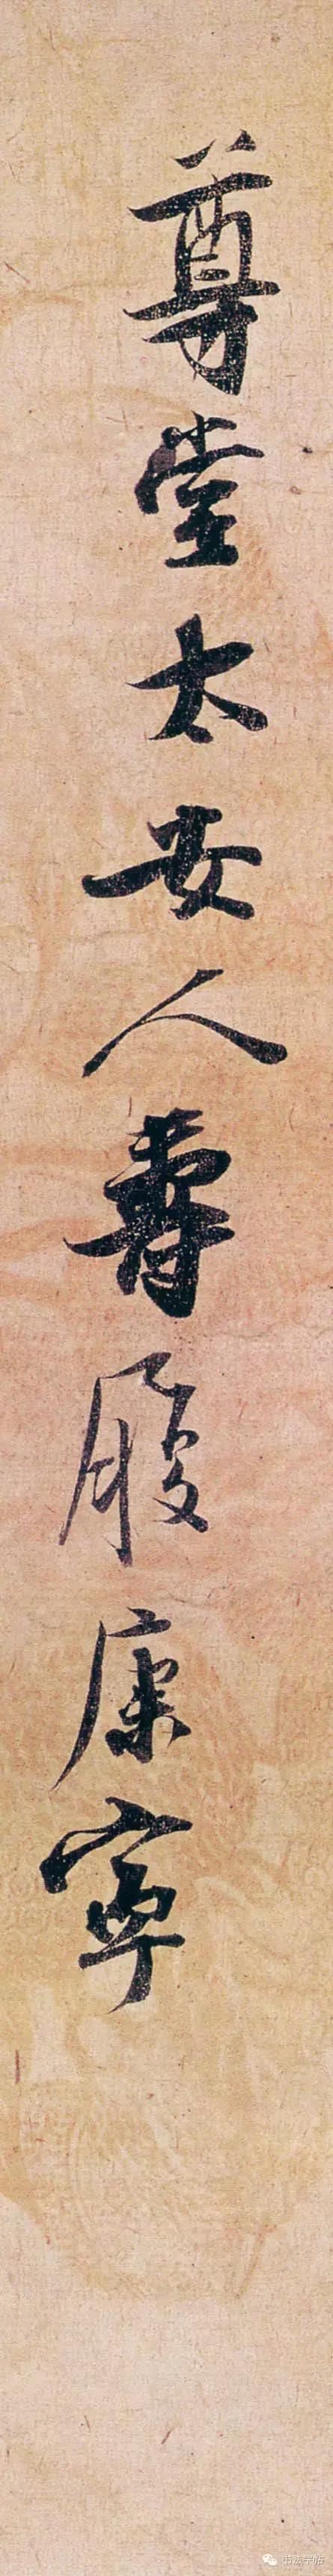 尊堂太安人壽履康寧
书法字帖